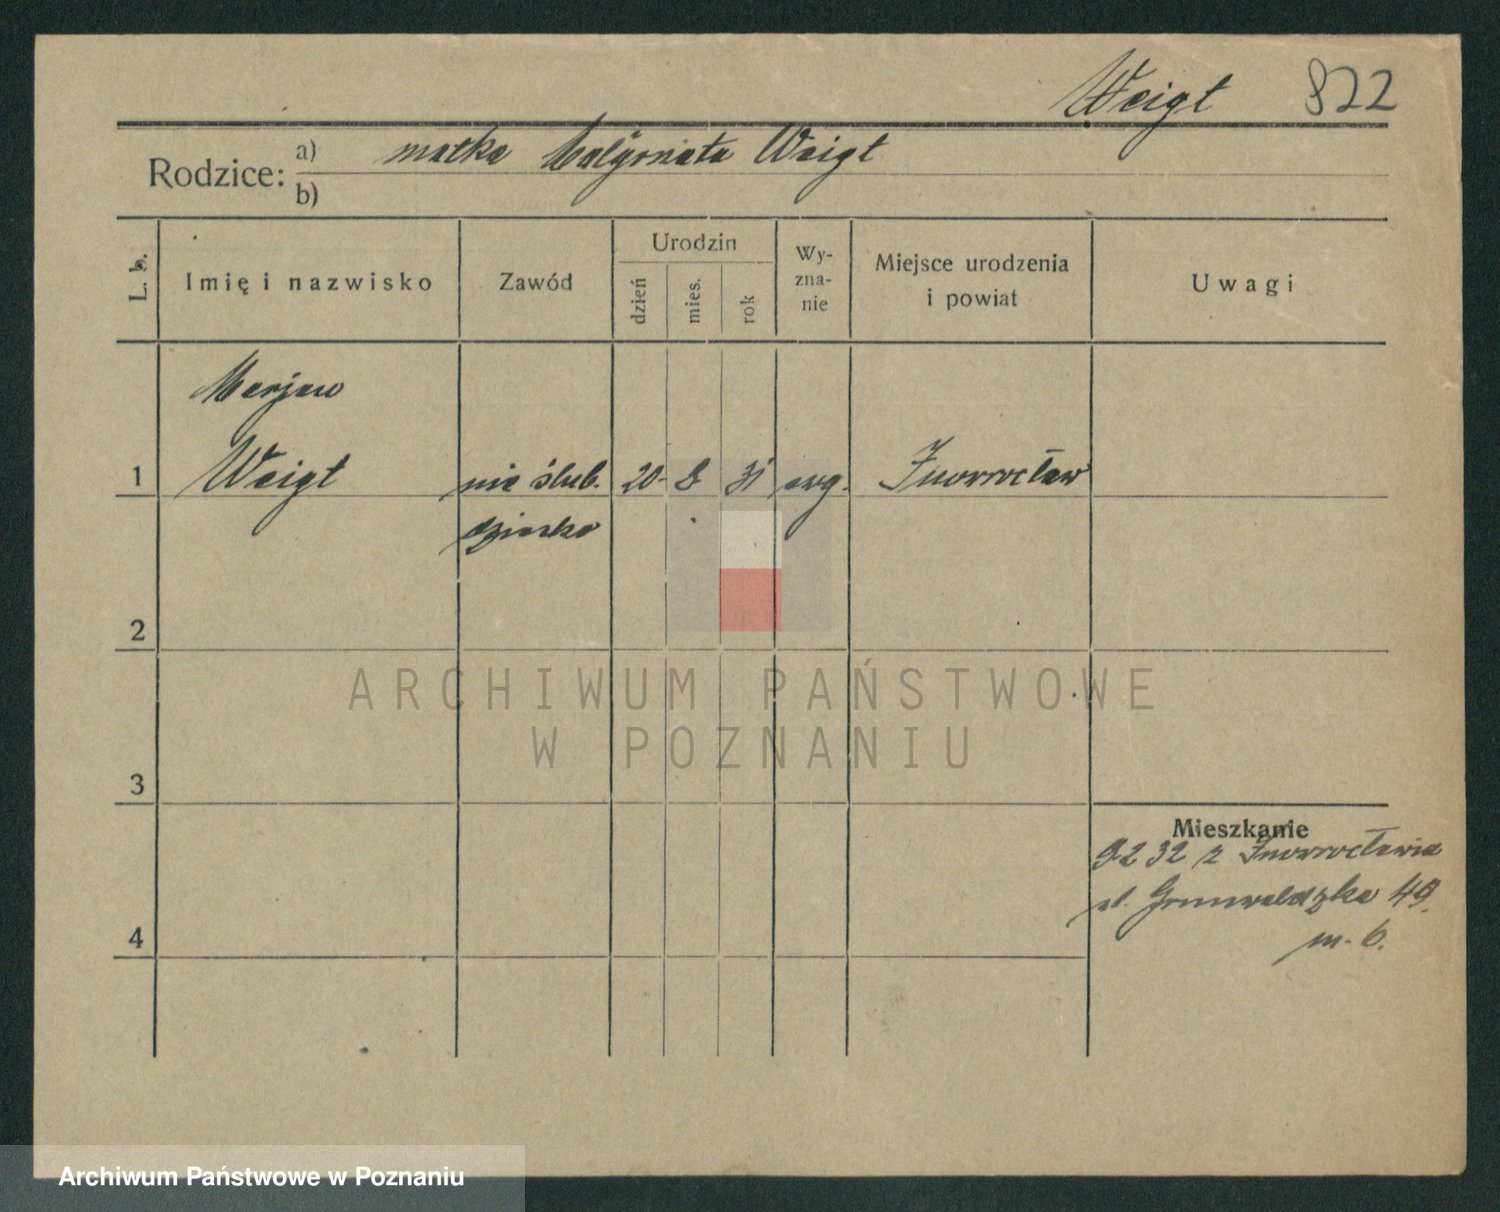 Weigt 822
Rodzice: a) matka Małgorzata Weigt
b)
L. b. Imię i nazwisko Zawód Urodzin dzień mies. rok Wy-zna-nie Miejsce urodzenia i powiat Uwagi
Marjan
1 Weigt nie ślub. 20. 8 31 ewg. Inowrocław
dziecko
2
ARCHIWUM PAŃSTWOWE
W POZNANIU
3
Mieszkanie
32 z Inowrocławia
ul. Grunwaldzka 49.
4
m. 6.
Archiwum Państwowe w Poznaniu